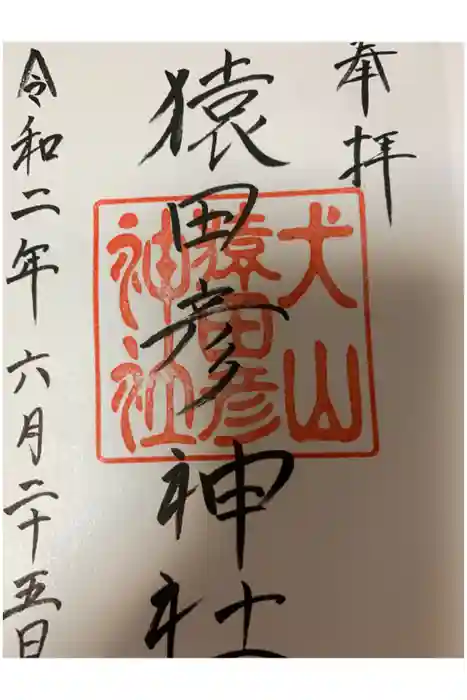 奉拝
猿田彦神社
犬山
猿田彦
神社
令和二年六月二十五日